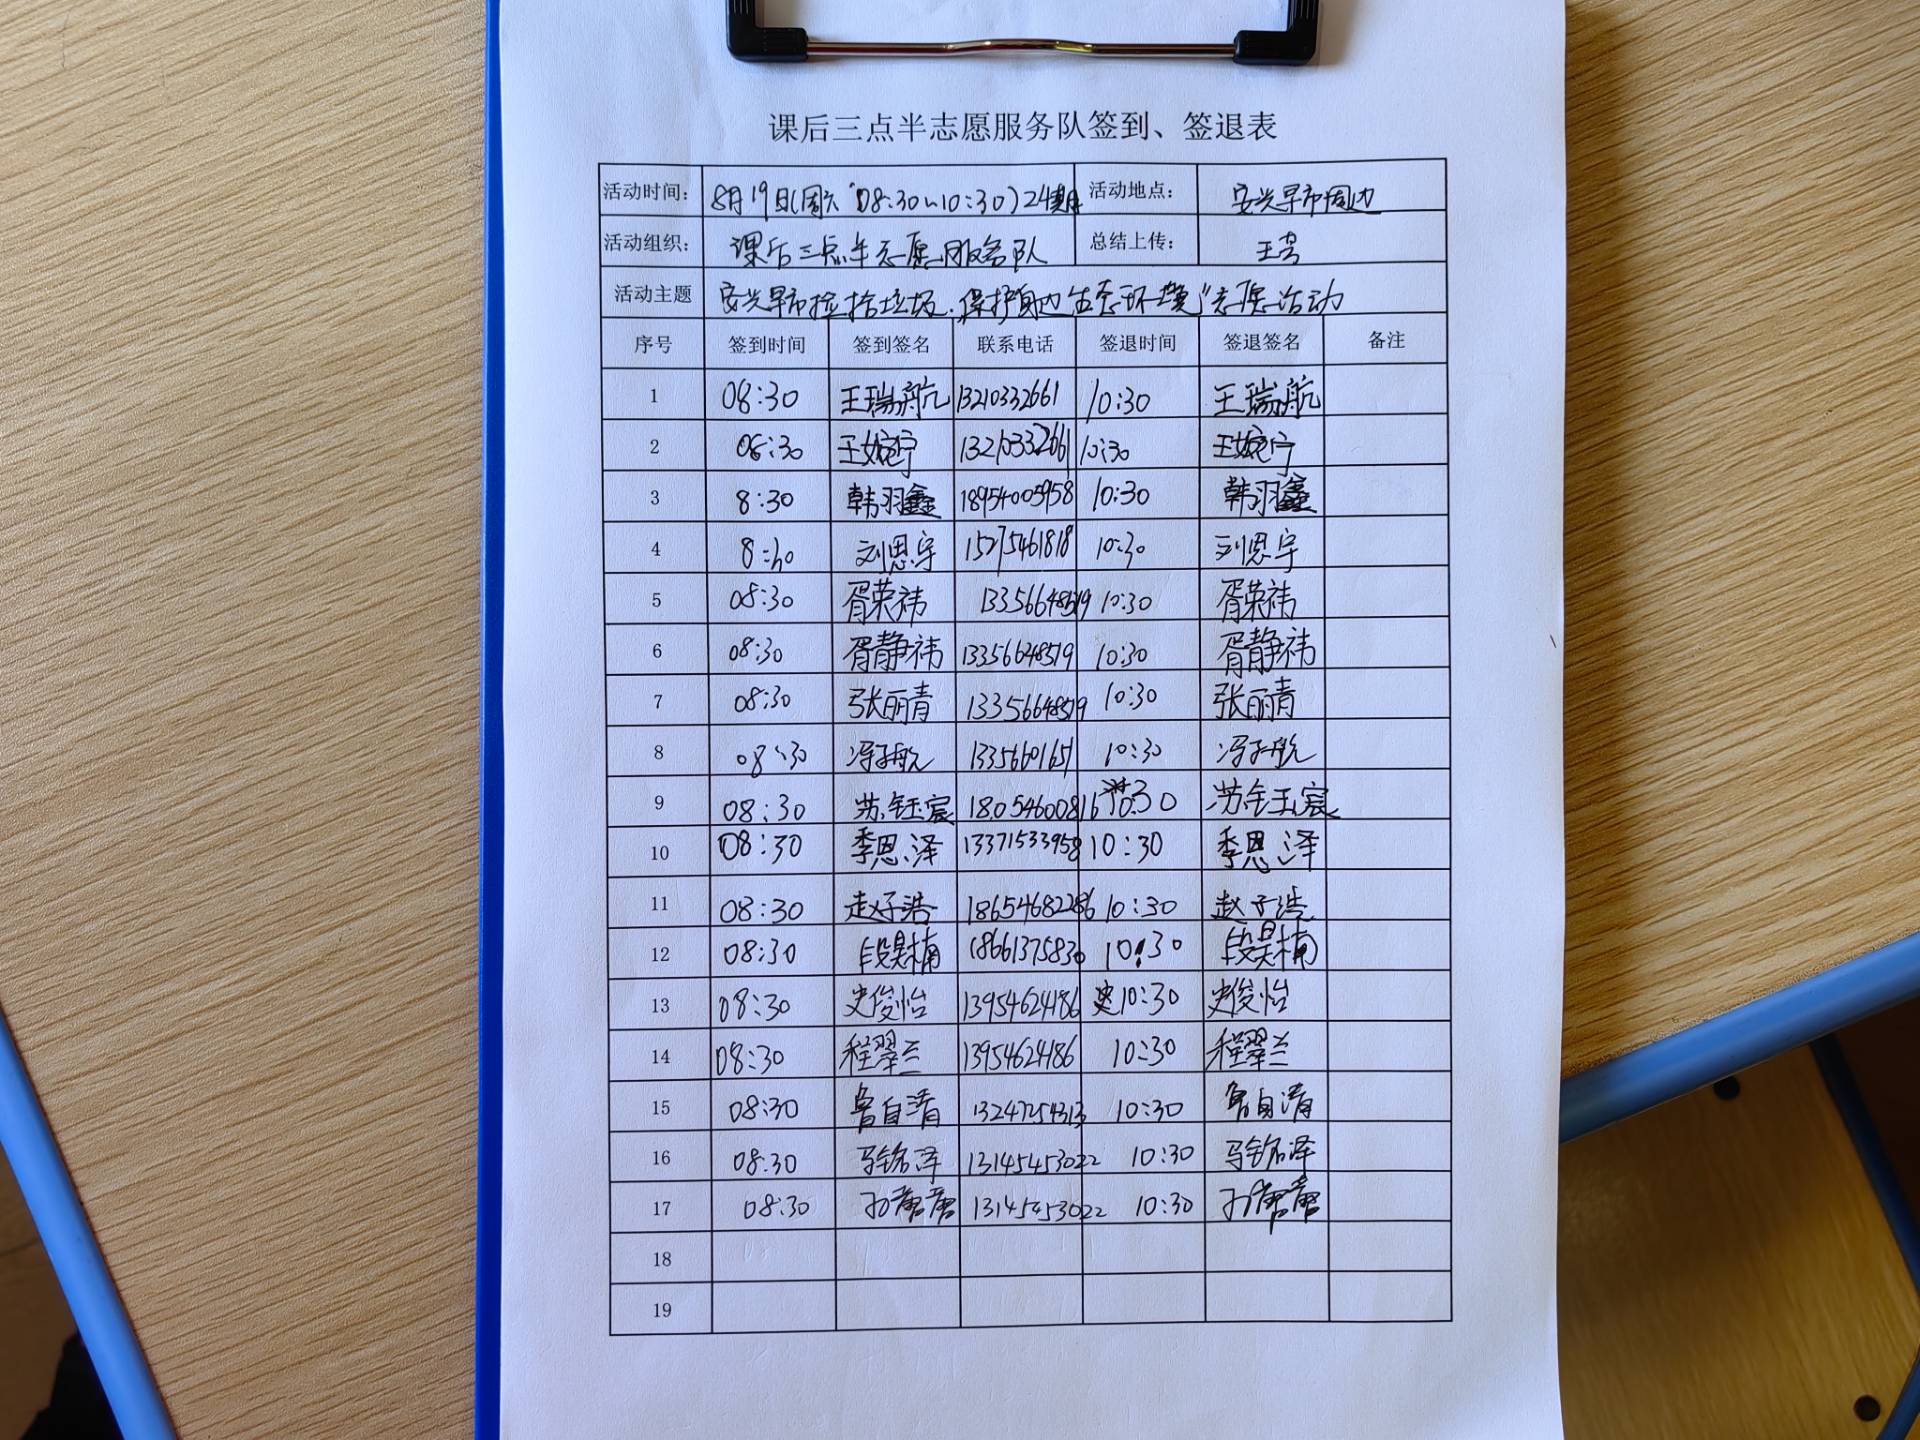 课后三点半志愿服务队签到、签退表
活动时间： 8月19日(周六 08:30~10:30)24期 活动地点： 安兴早市周边
活动组织： 课后三点半志愿服务队 总结上传： 王芳
活动主题 安兴早市捡拾垃圾.保护身边生态环境"志愿活动
序号 签到时间 签到签名 联系电话 签退时间 签退签名 备注
1 08:30 王瑞航 13210332661 10:30 王瑞航
2 08:30 王婉宁 13210332661 10:30 王婉宁
3 8:30 韩羽鑫 18954005958 10:30 韩羽鑫
4 8:30 刘恩宇 15275461818 10:30 刘恩宇
5 08:30 胥荣祎 13356648519 10:30 胥荣祎
6 08:30 胥静祎 13356648519 10:30 胥静祎
7 08:30 张丽青 13356648519 10:30 张丽青
8 08:30 冯子航 13356601651 10:30 冯子航
9 08:30 苏钰宸 18054600816 10:30 苏钰宸
10 08:30 季恩泽 13371533958 10:30 季恩泽
11 08:30 赵子浩 18654682286 10:30 赵子浩
12 08:30 段昊楠 18661375830 10:30 段昊楠
13 08:30 史俊怡 13954624186 10:30 史俊怡
14 08:30 程翠兰 13954624186 10:30 程翠兰
15 08:30 鲁自清 13247254313 10:30 鲁自清
16 08:30 马铭泽 13145453022 10:30 马铭泽
17 08:30 13145453022 10:30
18
19